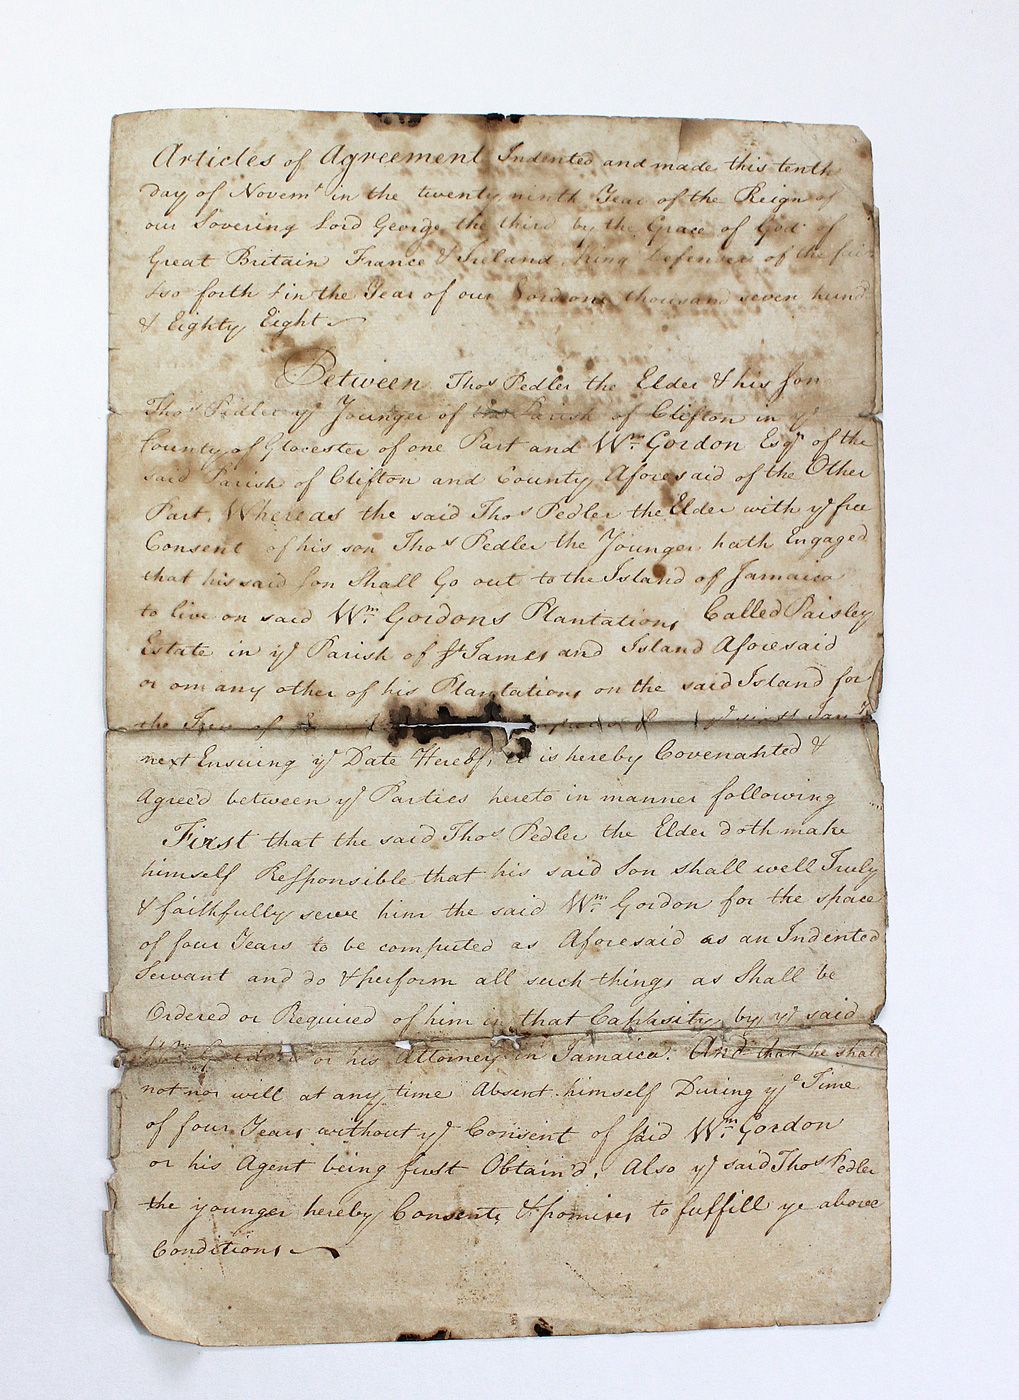 Articles of Agreement Indented and made this tenth
day of Novemr in the twenty ninth Year of the Reign of
our Sovering Lord George the third by the Grace of God of
Great Britain France & Ireland King Defender of the
&so forth & in the Year of our Lord one thousand seven hund
& Eighty Eight
Between Thos Pedler the Elder & his son
Thos Pedler ye Younger of Parish of Clifton in ye
County of Glocester of one Part and Wm Gordon Esqr of the
said Parish of Clifton and County Aforesaid of the Other
Part, Whereas the said Thos Pedler the Elder with ye free
Consent of his son Thos Pedler the Younger hath Engaged
that his said son Shall Go out to the Island of Jamaica
to live on said Wm Gordons Plantations Called Paisley
Estate in ye Parish of St James and Island Aforesaid
or on any other of his Plantations on the said Island for
the
next Ensuing ye Date Hereof, it is hereby Covenanted &
Agreed between ye Parties hereto in manner following
First that the said Thos Pedler the Elder doth make
himself Responsible that his said Son shall well Truly
& faithfully serve him the said Wm Gordon for the space
of four Years to be computed as Aforesaid as an Indented
Servant and do & perform all such things as Shall be
Ordered or Required of him in that Capasity, by ye said
Wm Gordon or his Attorney in Jamaica. And that he shall
not nor will at any time Absent himself During ye Time
of four Years without ye Consent of said Wm Gordon
or his Agent being first Obtain'd, Also ye said Thos Pedler
the younger hereby Consents & promises to fulfill ye above
Conditions